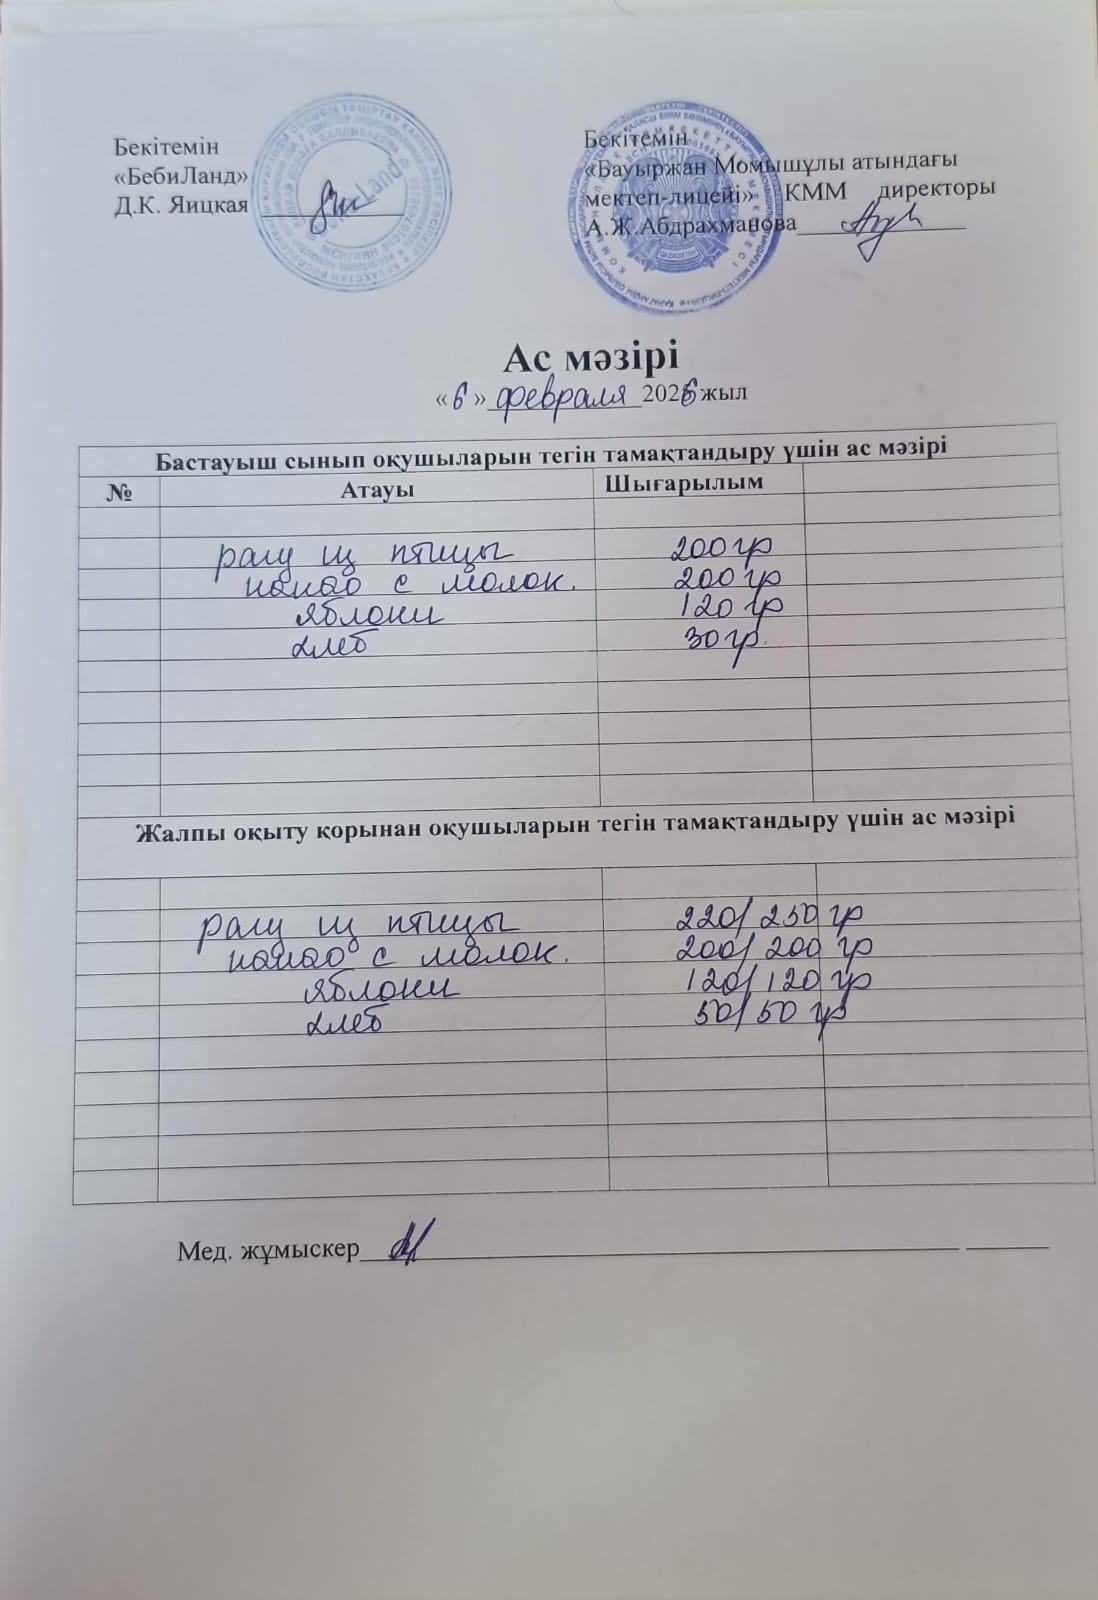 Бекітемін
«БебиЛанд»
Д.К. Яицкая
Бекітемін
«Бауыржан Момышұлы атындағы
мектеп-лицейі» КММ директоры
А.Ж.Абдрахманова
Ас мәзірі
«6» февраля 2026 жыл
Бастауыш сынып оқушыларын тегін тамақтандыру үшін ас мәзірі
№ Атауы Шығарылым
рагу из птицы 200 гр
какао с молок. 200 гр
яблоки 120 гр
хлеб 30 гр.
Жалпы оқыту қорынан оқушыларын тегін тамақтандыру үшін ас мәзірі
рагу из птицы 220/250 гр
какао с молок. 200/200 гр
яблоки 120/120 гр
хлеб 50/50 гр
Мед. жұмыскер